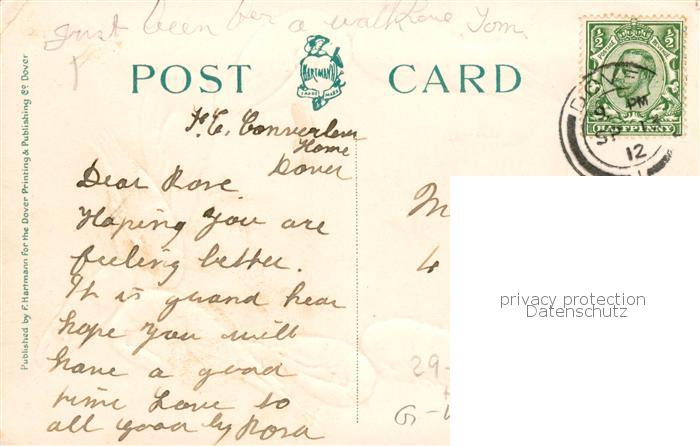 Just been for a walk love Tom.
POST CARD
HARTMANN
TRADE MARK
1/2 1/2
HALFPENNY
DOVER
PM
SP
12
F. C. Converlen
Home
Dover
Dear Rose.
Hoping you are
feeling better.
It is grand hear
hope you will
have a good
time Love to
all good by Rosa
M
4
29-
G-
privacy protection
Datenschutz
Published by F. Hartmann for the Dover Printing & Publishing Co Dover